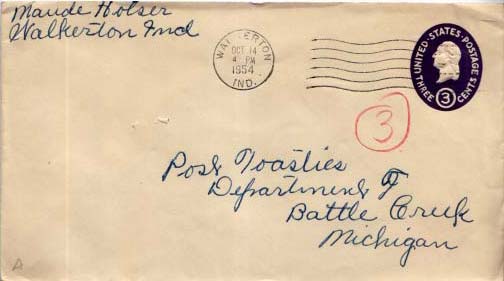 Maude Holser
Walkerton Ind
WALKERTON
OCT 14
4 PM
1954
IND.
UNITED·STATES·POSTAGE
THREE 3 CENTS
3
Post Toasties
Department T
Battle Creek
Michigan
A